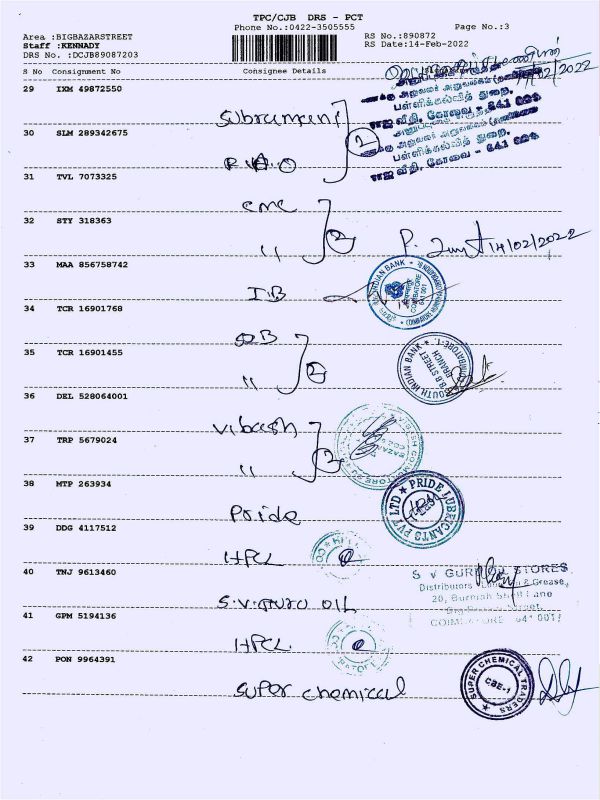 TPC/CJB DRS - PCT
Phone No.:0422-3505555
Page No.:3
Area :BIGBAZARSTREET
Staff :KENNADY
DRS No. :DCJB89087203
RS No.:890872
RS Date:14-Feb-2022
S No Consignment No Consignee Details
29 IXM 49872550
Subramani
30 SLM 289342675
2
பள்ளிக்கல்வித் துறை.
பள்ளிக்கல்வித் துறை.
31 TVL 7073325
CMC
32 STY 318363
"
2
14/02/2022
33 MAA 856758742
IB
INDIAN BANK
COIMBATORE
641 001
34 TCR 16901768
SIB
35 TCR 16901455
"
2
SOUTH INDIAN BANK
B.B STREET
BRANCH
COIMBATORE-1
36 DEL 528064001
Vibash
37 TRP 5679024
"
2
38 MTP 263934
Pride
PRIDE LUBRICANTS PVT LTD
39 DDG 4117512
HPCL
40 TNJ 9613460
S.V.GURU OIL
S V GURU OIL STORES
Distributors
& Grease,
20, Burmah Shell Lane
Street,
COIMBATORE 641 001
41 GPM 5194136
HPCL
42 PON 9964391
Super chemical
SUPER CHEMICAL TRADERS
CBE-1